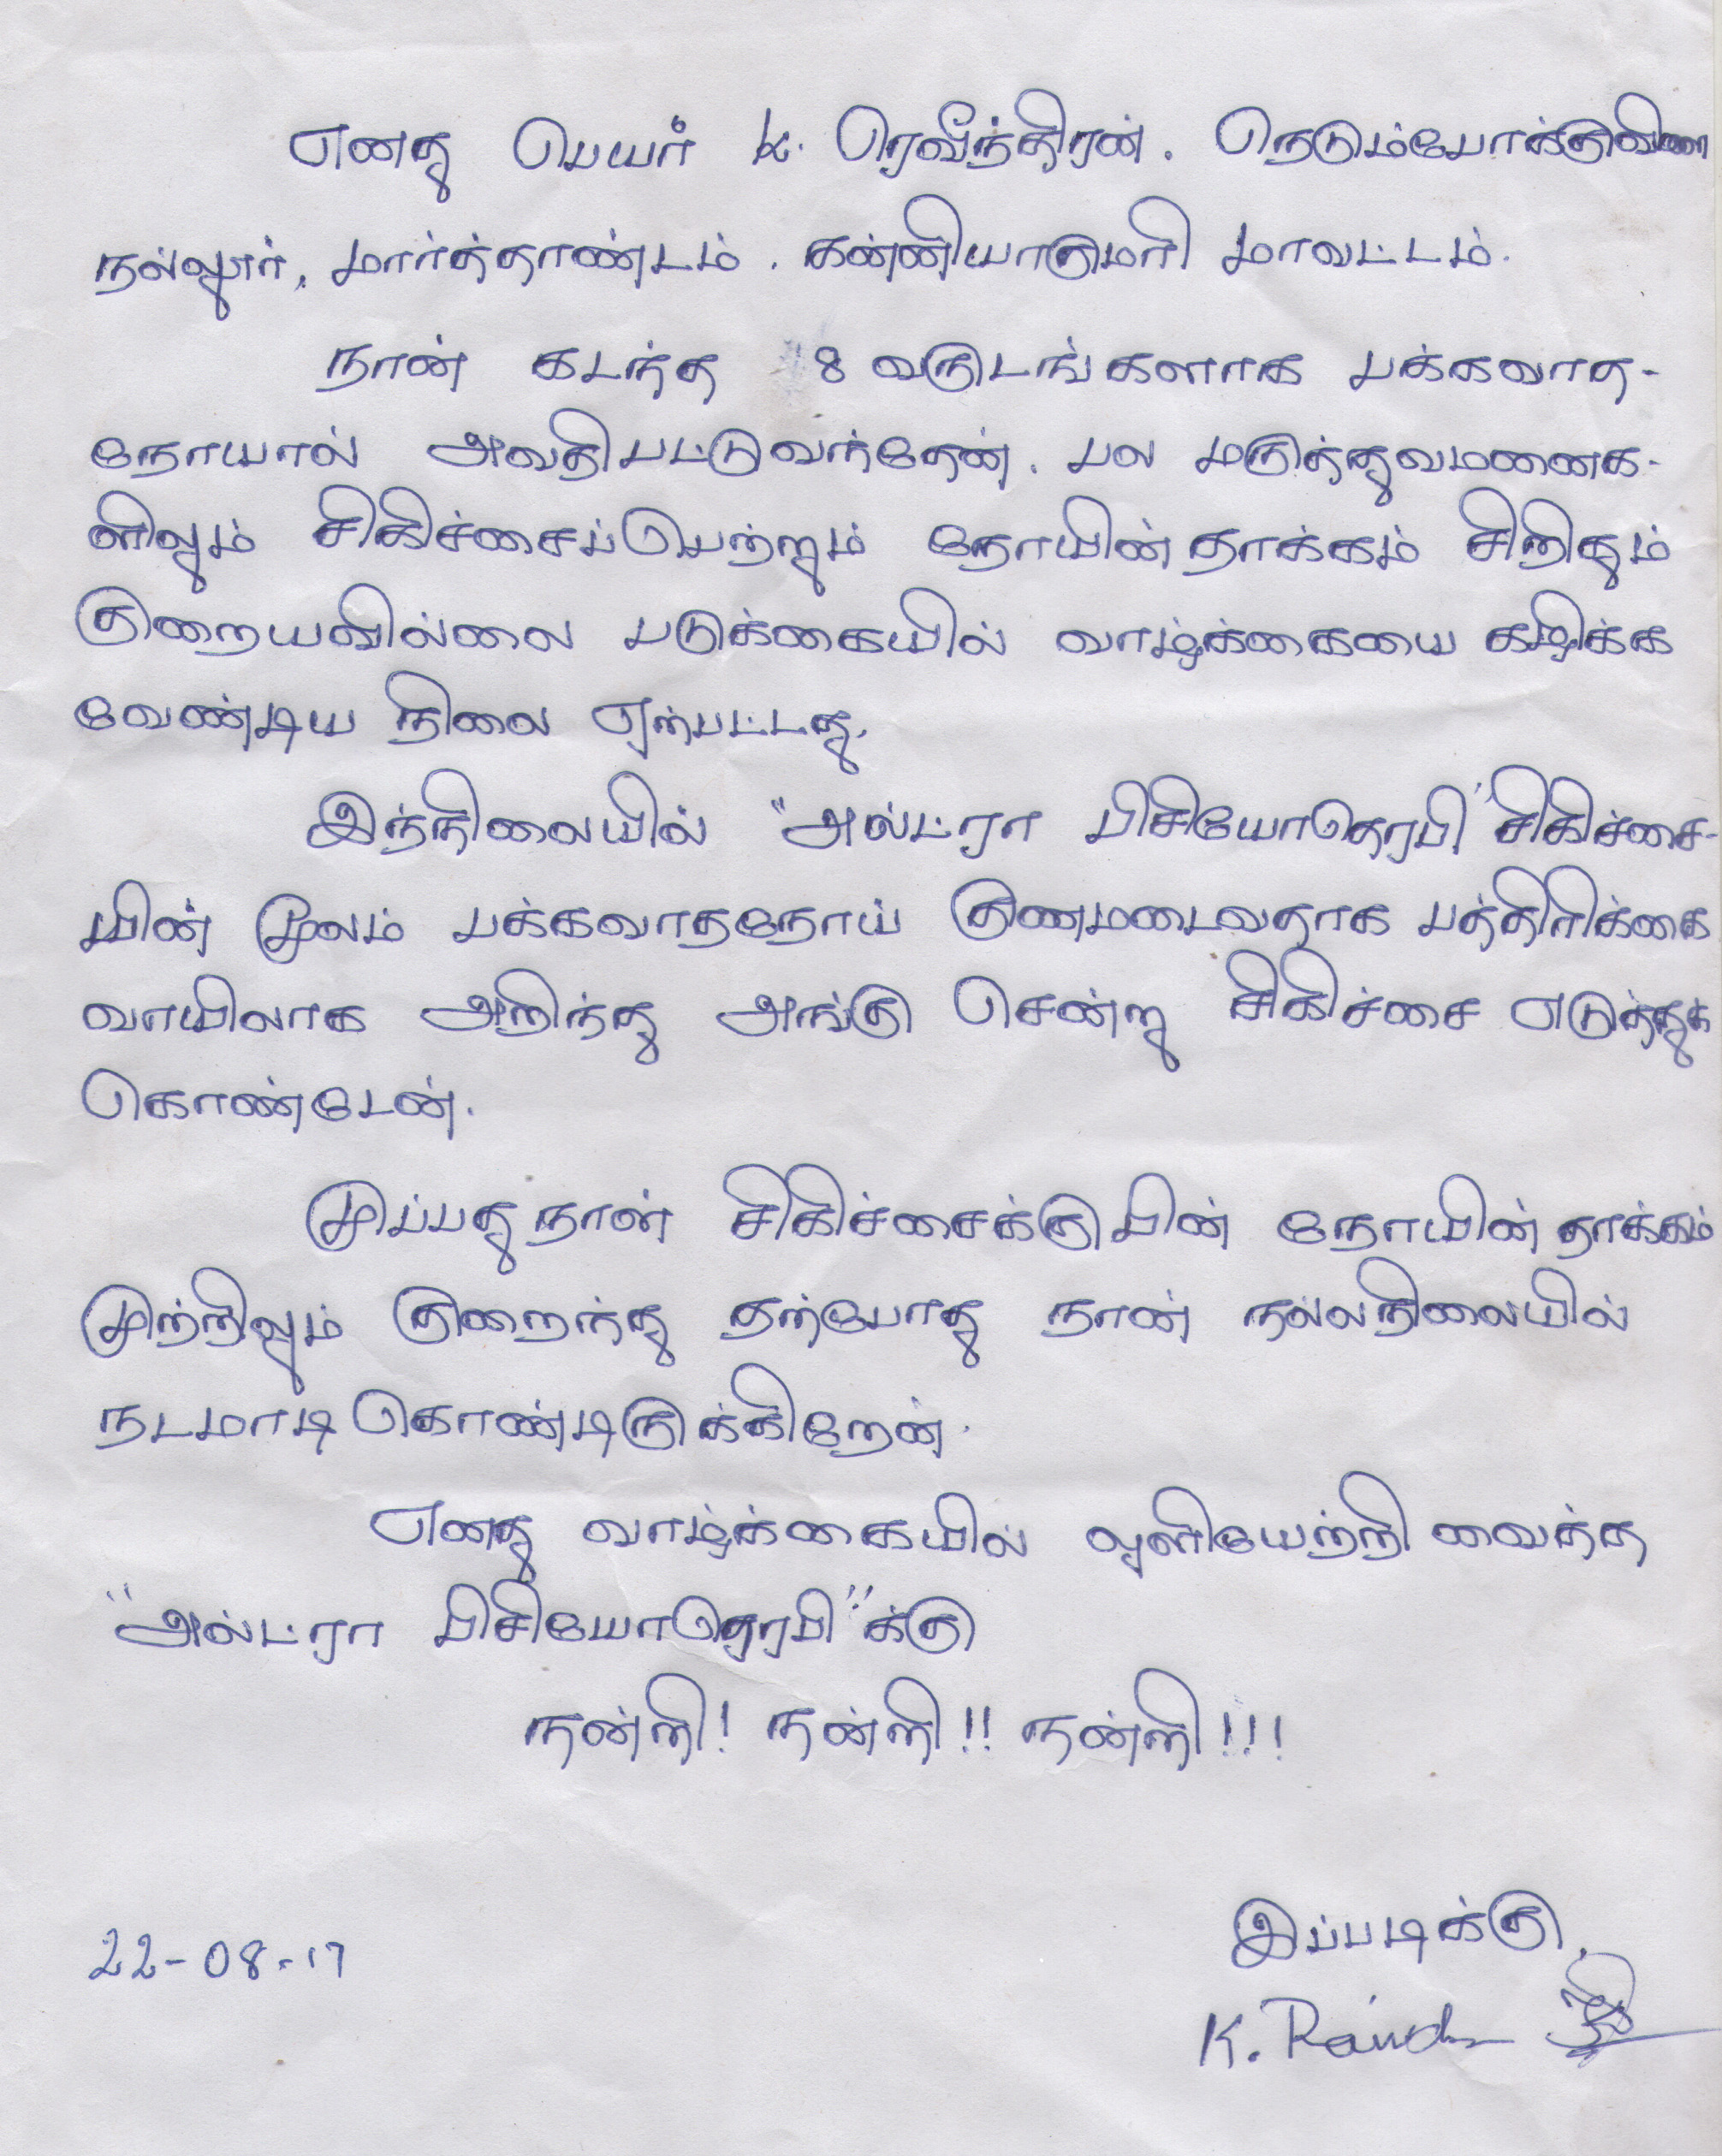 எனது பெயர் K. ரெவீந்திரன். நெடும்போக்குவிளை
நல்லூர், மார்த்தாண்டம். கன்னியாகுமரி மாவட்டம்.
நான் கடந்த 8 வருடங்களாக பக்கவாத-
நோயால் அவதிபட்டுவந்தேன். பல மருத்துவமணைக-
ளிலும் சிகிச்சைப்பெற்றும் நோயின் தாக்கம் சிறிதும்
குறையவில்லை படுக்கையில் வாழ்க்கையை கழிக்க
வேண்டிய நிலை ஏற்பட்டது.
இந்நிலையில் "அல்ட்ரா பிசியோதெரபி" சிகிச்சை-
யின் மூலம் பக்கவாதநோய் குணமடைவதாக பத்திரிக்கை
வாயிலாக அறிந்து அங்கு சென்று சிகிச்சை எடுத்துக்
கொண்டேன்.
முப்பது நாள் சிகிச்சைக்கு பின் நோயின் தாக்கம்
முற்றிலும் குறைந்து தற்போது நான் நல்லநிலையில்
நடமாடி கொண்டிருக்கிறேன்.
எனது வாழ்க்கையில் ஒளியேற்றி வைத்த
"அல்ட்ரா பிசியோதெரபி"க்கு
நன்றி! நன்றி!! நன்றி!!!
இப்படிக்கு,
22-08-17
K.